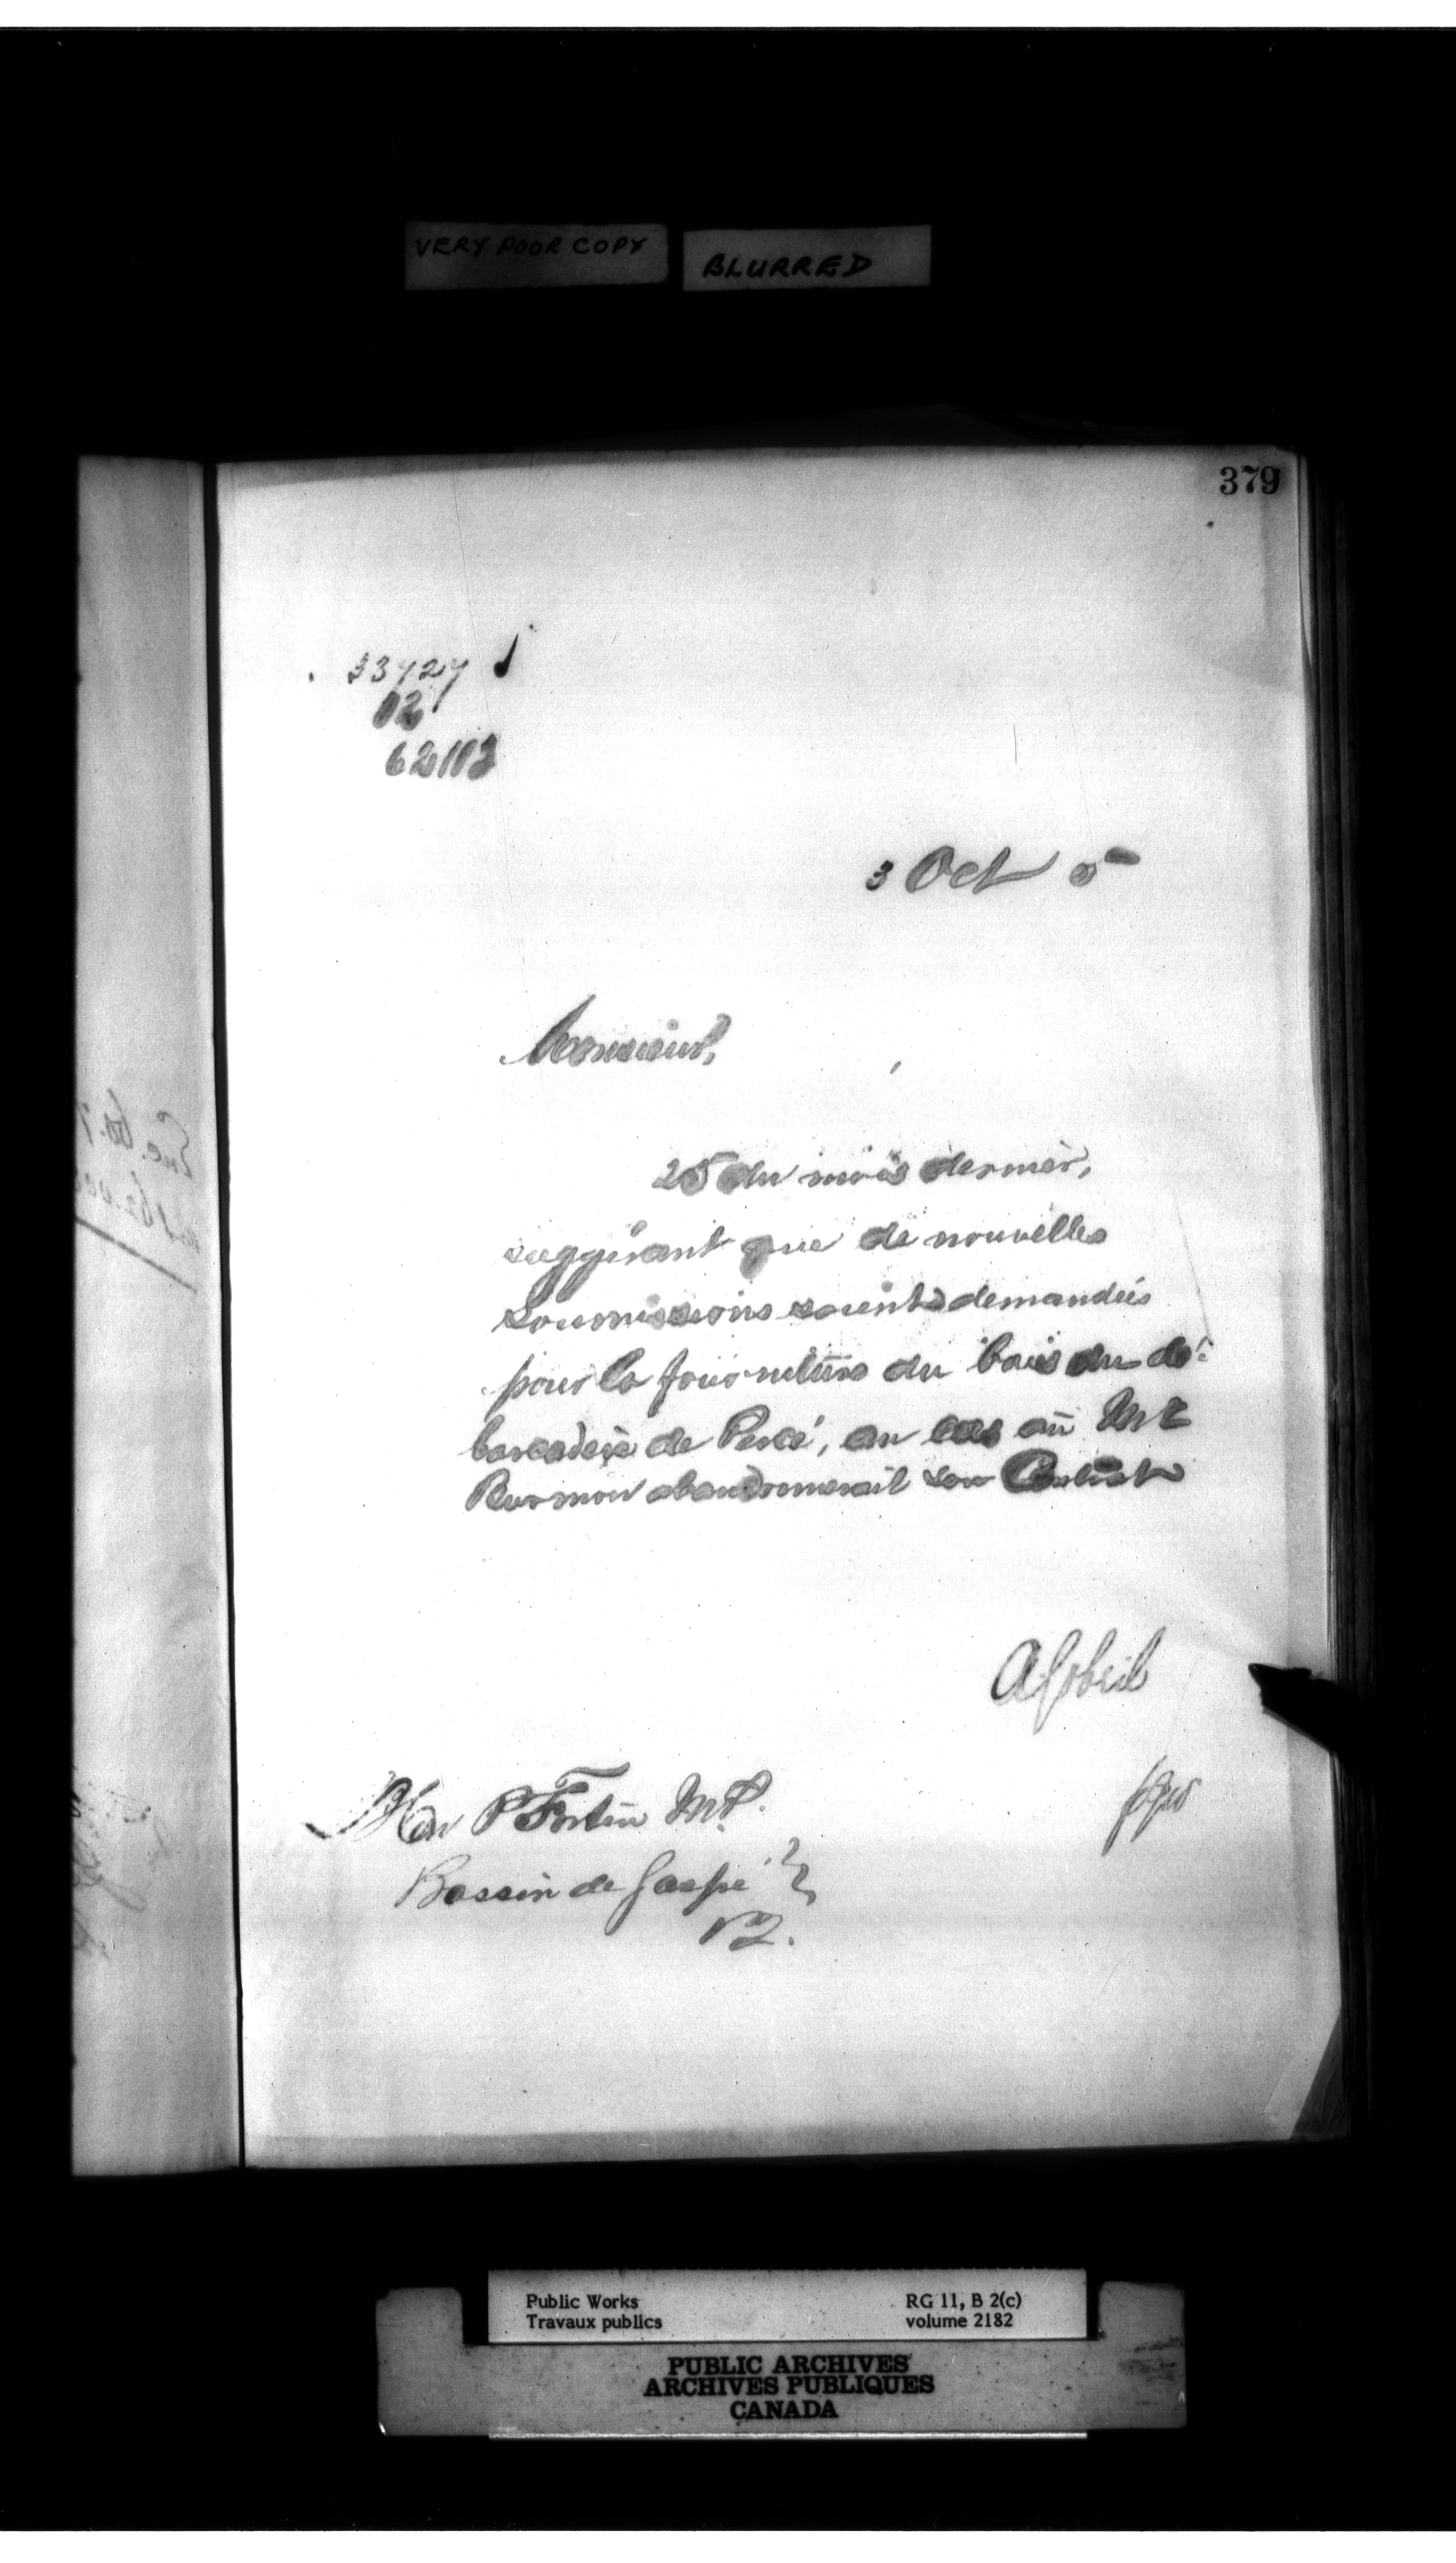 VERY POOR COPY
BLURRED
379
33727
62113
3 Oct 5
Monsieur,
25 du mois dernier,
suggérant que de nouvelles
soumissions soient demandées
pour la fourniture du bois du dé-
barcadère de Percé, au cas où Mr
abandonnerait son Contrat
A Gobeil
Hon P Fortin M.P.
Bassin de Gaspé
PQ.
Public Works
Travaux publics
RG 11, B 2(c)
volume 2182
PUBLIC ARCHIVES
ARCHIVES PUBLIQUES
CANADA